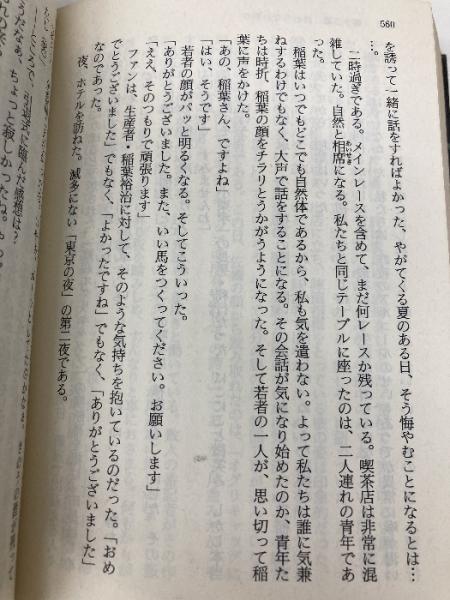 560
を誘って一緒に話をすればよかった、やがてくる夏のある日、そう悔やむことになるとは…
…。
二時過ぎである。メインレースを含めて、まだ何レースか残っている。喫茶店は非常に混
雑していた。自然と相席になる。私たちと同じテーブルに座ったのは、二人連れの青年であ
った。
稲葉はいつでもどこでも自然体であるから、私も気を遣わない。よって私たちは誰に気兼
ねするわけでもなく、大声で話をすることになる。その会話が気になり始めたのか、青年た
ちは時折、稲葉の顔をチラリとうかがうようになった。そして若者の一人が、思い切って稲
葉に声をかけた。
「あの、稲葉さん、ですよね」
「はい、そうです」
若者の顔がパッと明るくなる。そしてこういった。
「ありがとうございました。また、いい馬をつくってください。お願いします」
「ええ、そのつもりで頑張ります」
ファンは、生産者・稲葉裕治に対して、そのような気持ちを抱いているのだった。「おめ
でとうございました」でもなく、「よかったですね」でもなく、「ありがとうございました」
なのであった。
夜、ホテルを訪ねた。滅多にない「東京の夜」の第二夜である。
ところで、引退式に臨んだ感想は？
うだなぁ、ちょっと寂しかったね。